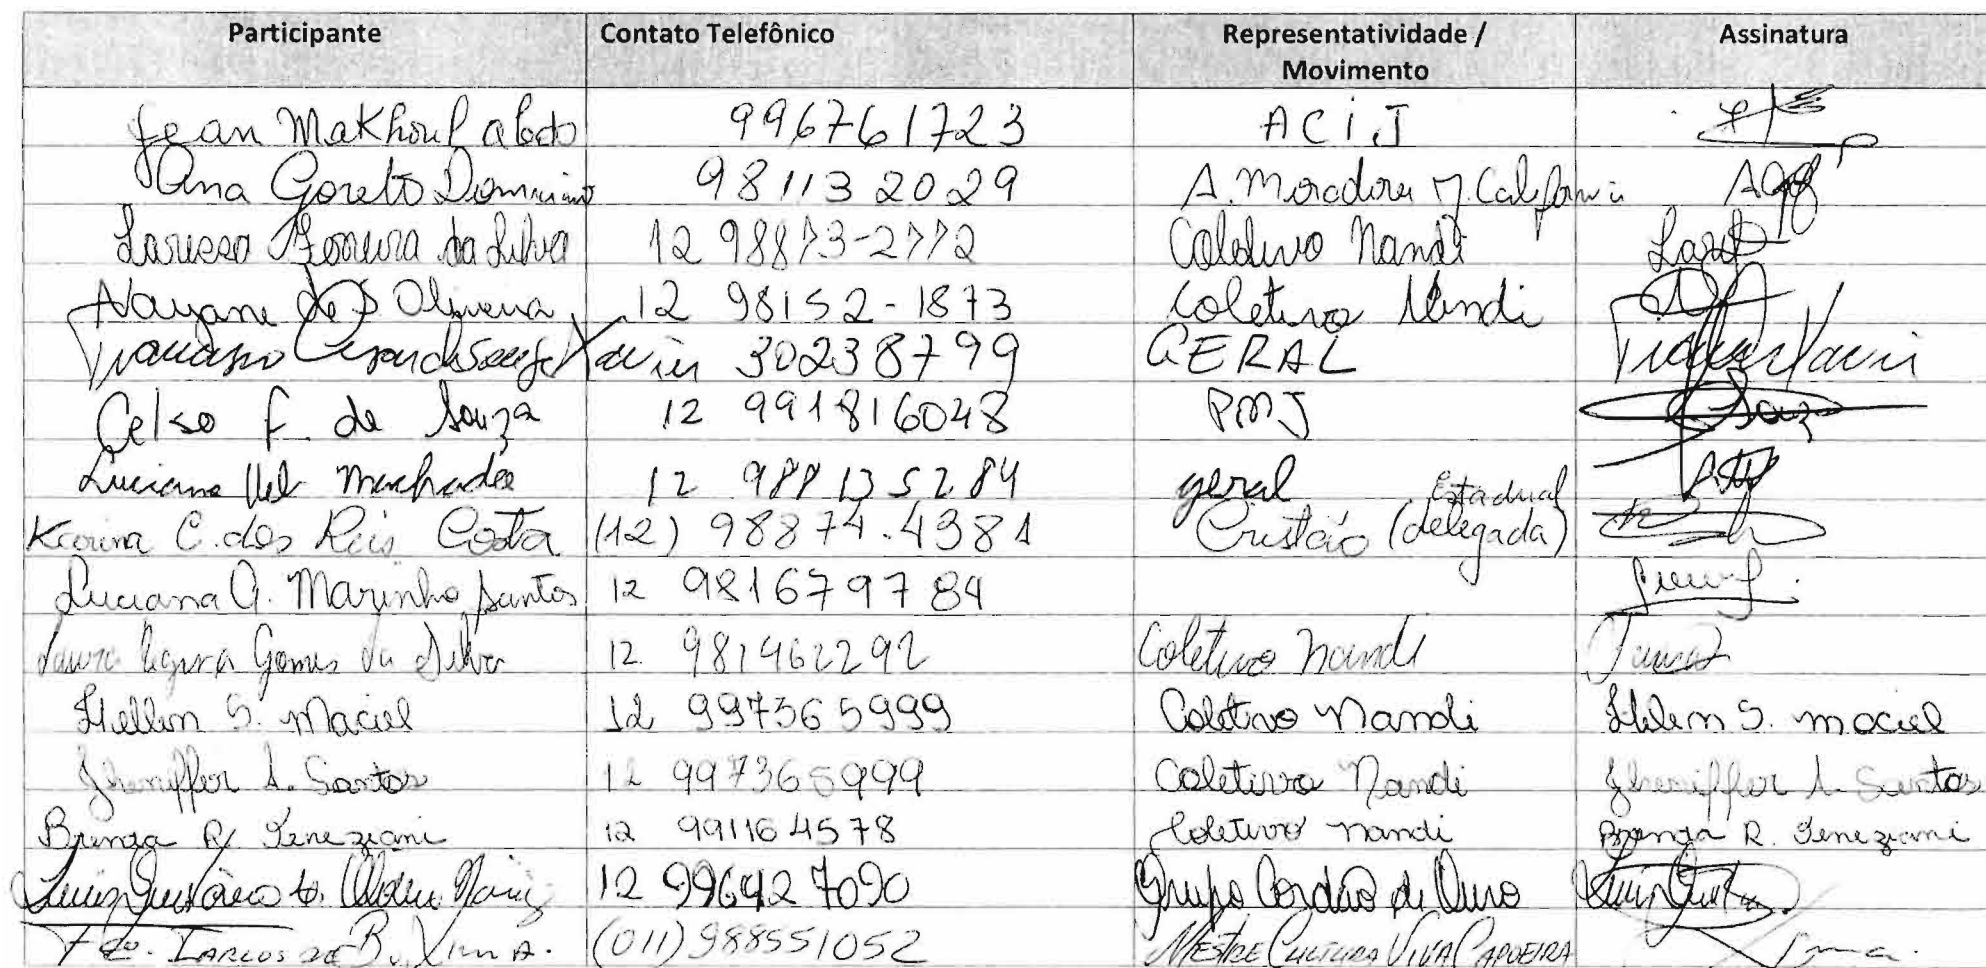 Participante Contato Telefônico Representatividade / Movimento Assinatura
Jean Makhoul 996761723 ACIJ
Ana Goreto Domiciano 981132029 A. Moradores J. California
Larissa Ferreira da Silva 12 98873-2772 Coletivo Nandi
Nayane de S Oliveira 12 98152-1873 Coletivo Nandi
Xavier 30238799 GERAL
Celso F. de Souza 12 991816048 PMJ
Luciana Machado 12 988135284 geral
Karina C. dos Reis Costa (12) 98874.4381 Cristão (delegada) Estadual
Luciana G. Marinho Santos 12 981679784
Gomes da Silva 12 981462292 Coletivo Nandi
Hellen S. Maciel 12 997365999 Coletivo Nandi Hellen S. maciel
Jheniffer A. Santos 12 997365999 Coletivo Nandi Jheniffer A. Santos
Brenda R. Veneziani 12 991164578 Coletivo nandi Brenda R. Veneziani
Luis Gustavo 12 996427090 Grupo Cordão de Ouro
Carlos de B. Lima. (011) 988551052 MESTRE CULTURA VIVA CAPOEIRA